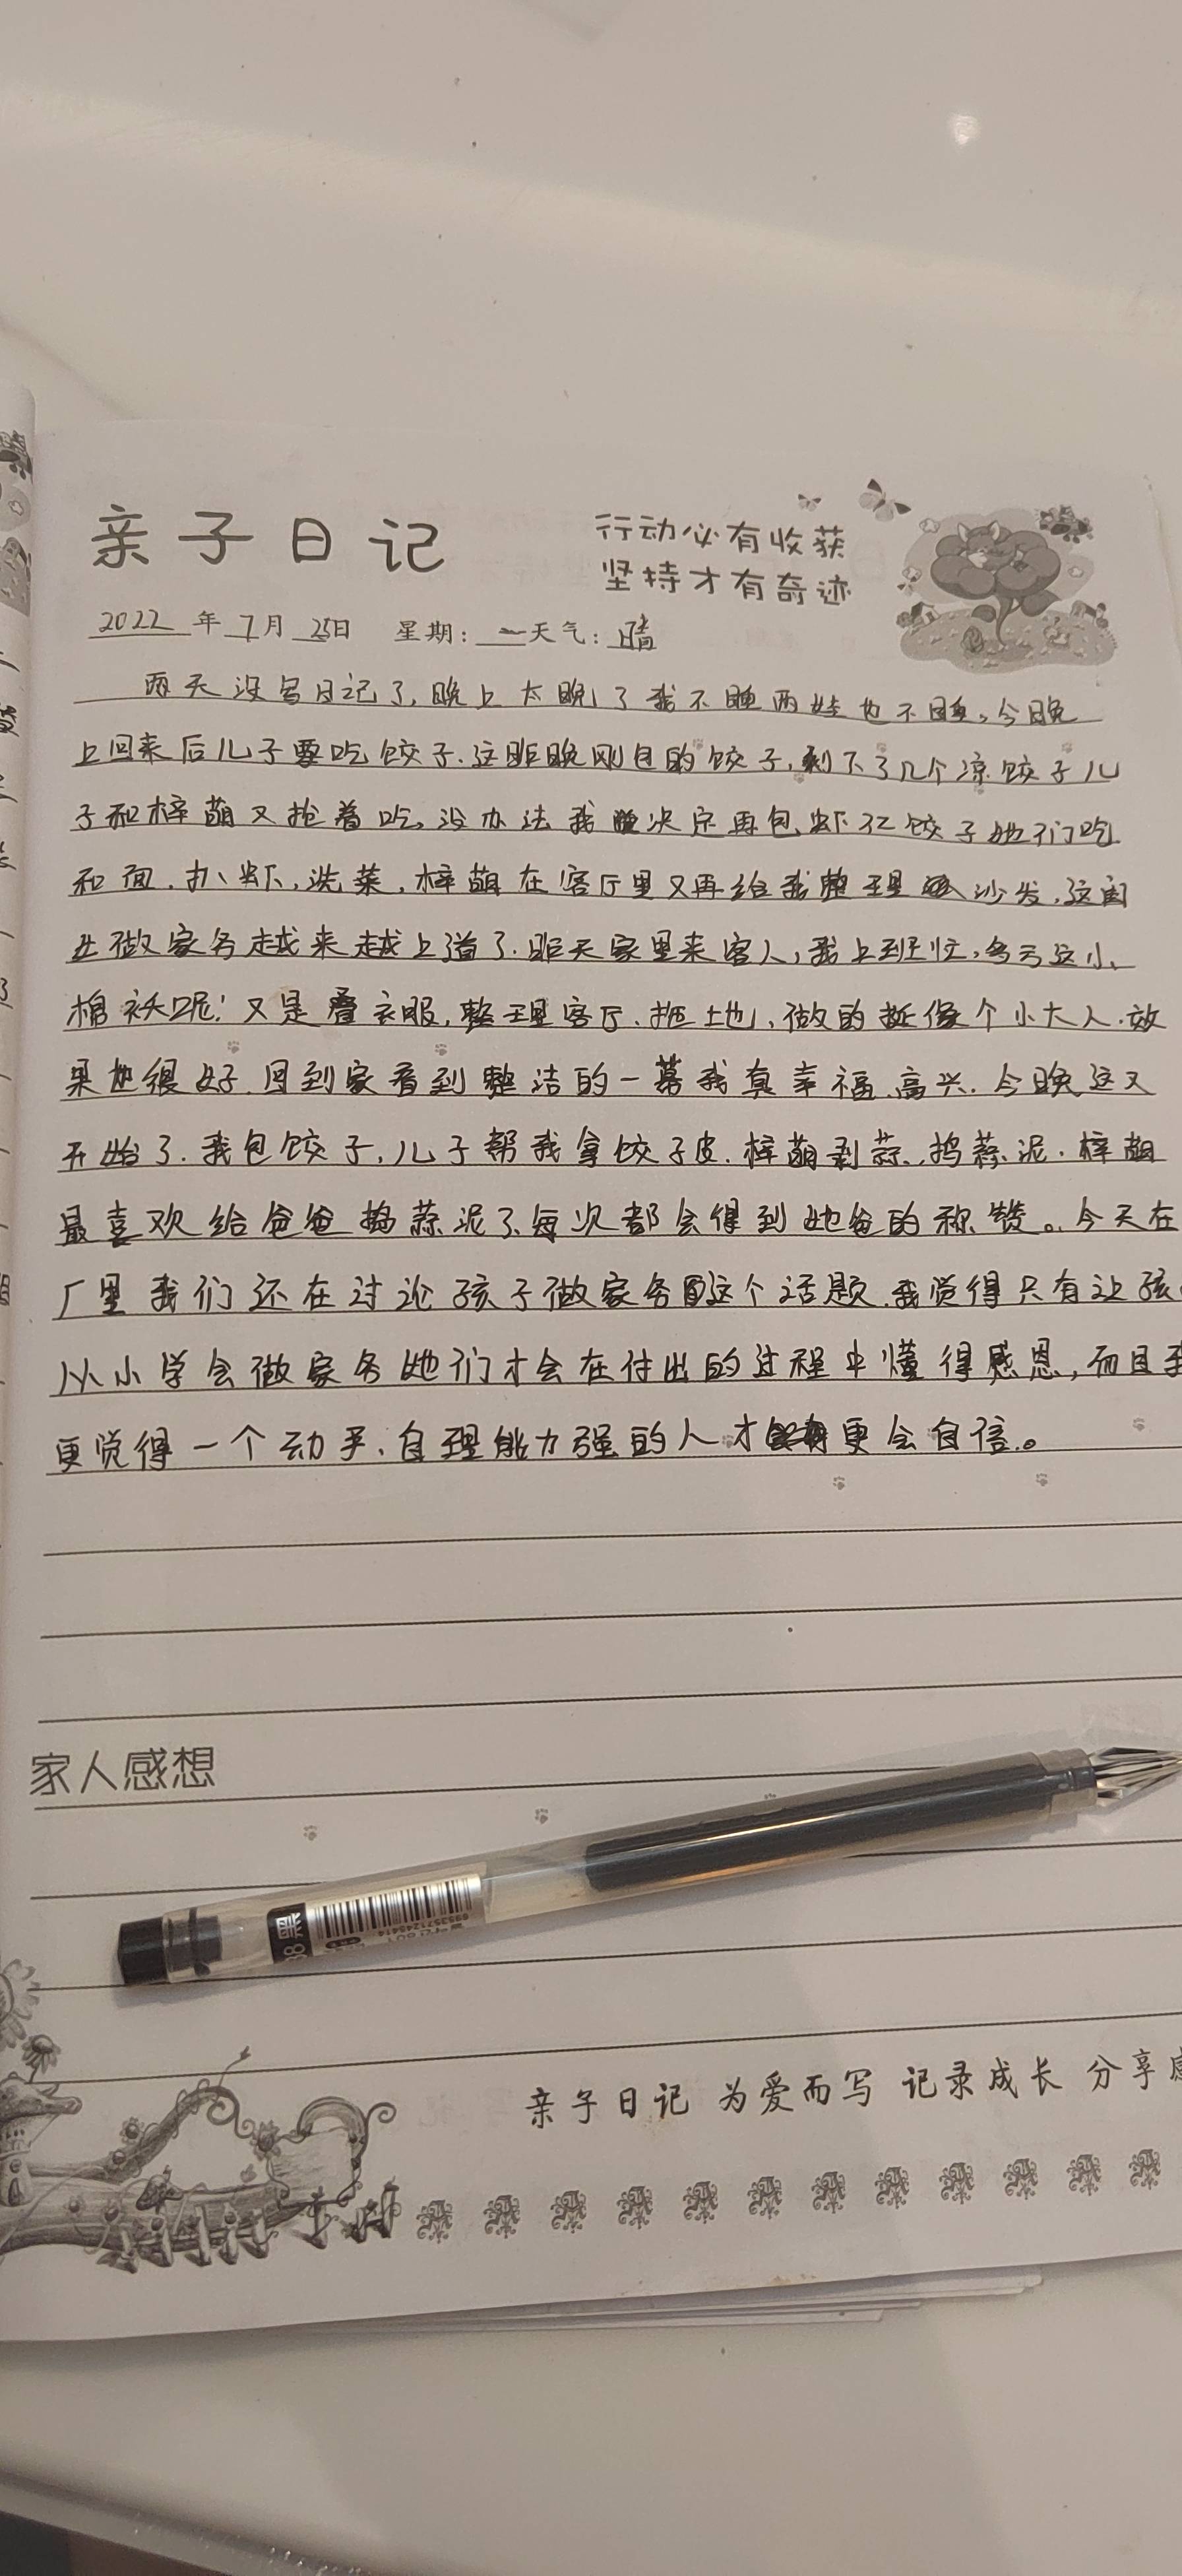 亲子日记
行动必有收获
坚持才有奇迹
2022年7月25日 星期:一天气:晴
两天没写日记了,晚上太晚了我不睡两娃也不睡。今晚
上回来后儿子要吃饺子.这昨晚刚包的饺子,剩下了几个凉饺子儿
子和梓萌又抢着吃,没办法我决定再包虾仁饺子她们吃
和面.扒虾,洗菜,梓萌在客厅里又再给我整理沙发,这闺
女做家务越来越上道了.昨天家里来客人,我上班忙,多亏这小
棉袄呢!又是叠衣服,整理客厅.拖土地,做的挺像个小大人.效
果也很好.回到家看到整洁的一幕我真幸福、高兴.今晚这又
开始了.我包饺子,儿子帮我拿饺子皮.梓萌剥蒜,捣蒜泥.梓萌
最喜欢给爸爸捣蒜泥了,每次都会得到她爸的称赞。今天在
厂里我们还在讨论孩子做家务这个话题.我觉得只有让孩
从小学会做家务她们才会在付出的过程中懂得感恩,而且我
更觉得一个动手、自理能力强的人才更会自信。
家人感想
黑
亲子日记 为爱而写 记录成长 分享感